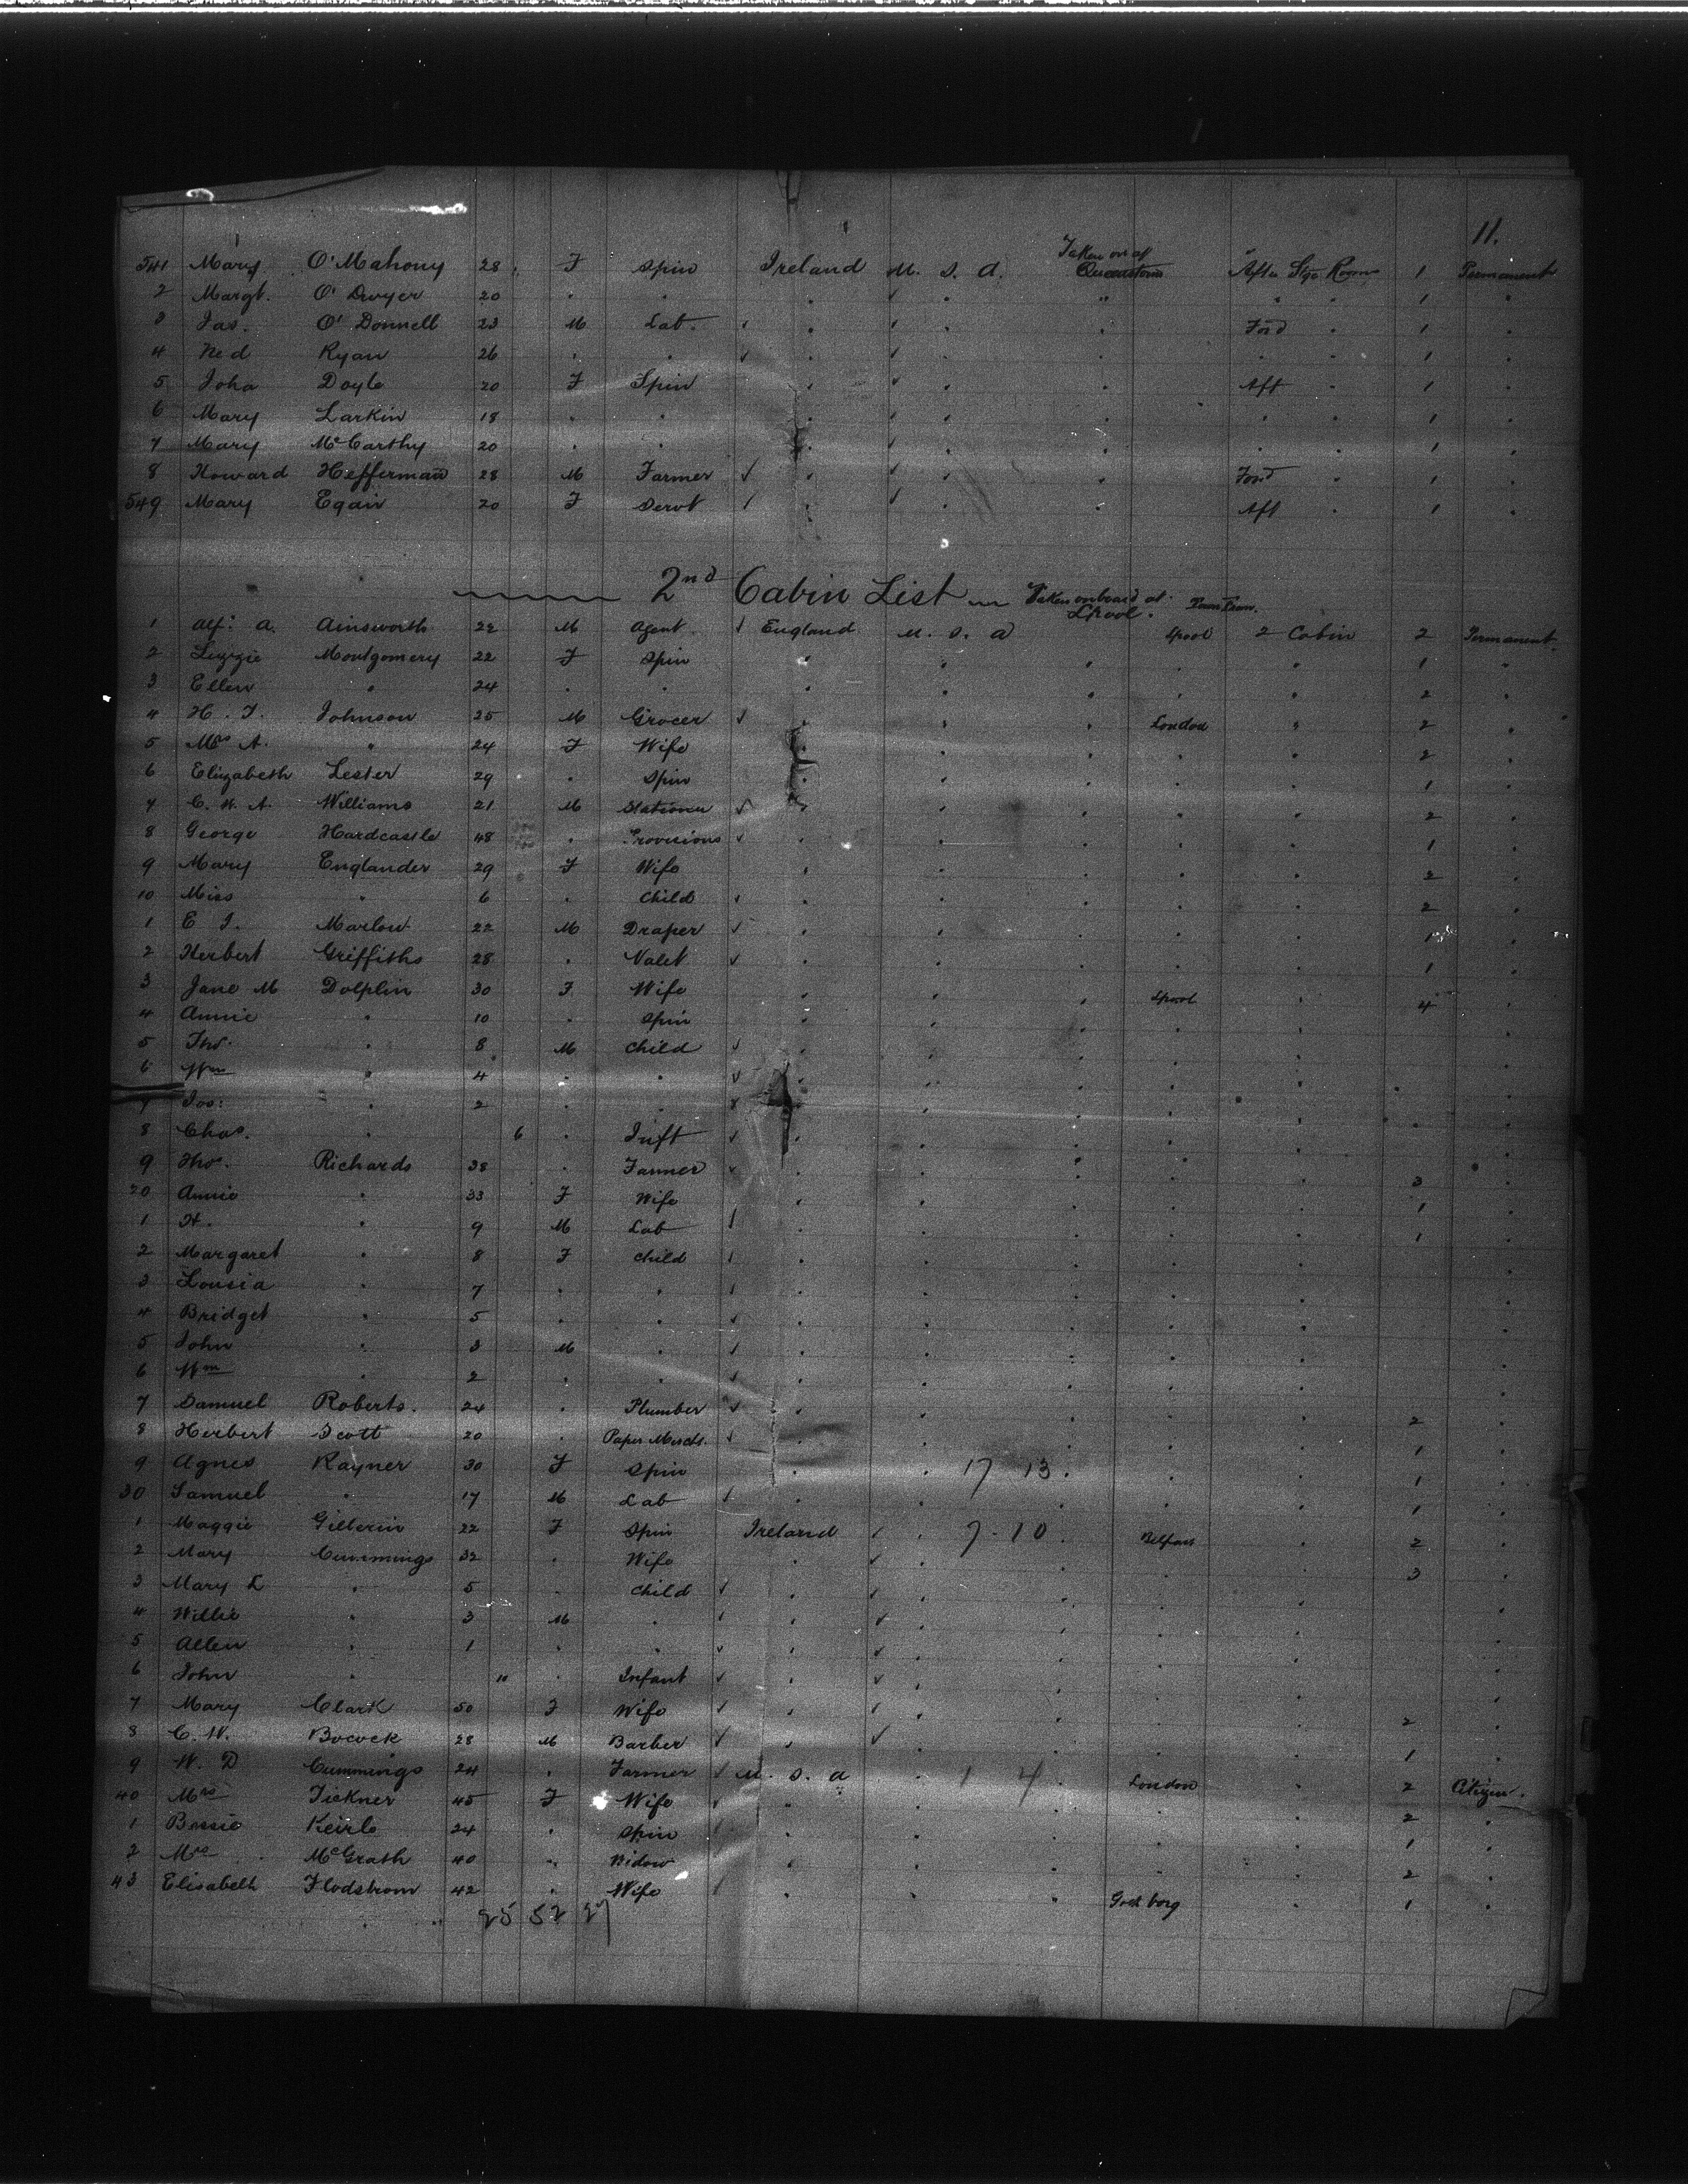 11.
541 Mary O'Mahony 28 F Spin Ireland U. S. A. Taken on at Queenstown After Stge Room 1 Permanent
2 Margt. O'Dwyer 20 " " " " " " " 1 "
3 Jas. O'Donnell 23 M Lab. " " " Ford " 1 "
4 Ned Ryan 26 " " " " " " 1 "
5 Joha Doyle 20 F Spin " " " Aft " 1 "
6 Mary Larkin 18 " " " " " " " 1 "
7 Mary McCarthy 20 " " " " " " 1 "
8 Howard Hefferman 28 M Farmer " " " Ford " 1 "
549 Mary Egain 20 F Servt " " " Aft " 1 "
2nd Cabin List Taken onboard at Lpool.
1 Alf: A. Ainsworth 22 M Agent England U. S. A Lpool 2 Cabin 2 Permanent
2 Lizzie Montgomery 22 F Spin " " " " " 1 "
3 Ellen " 24 " " " " " " " 2 "
4 H. J. Johnson 25 M Grocer " " " London " 2 "
5 Mrs A. " 24 F Wife " " " " " 2 "
6 Elizabeth Lester 29 " Spin " " " " " 1 "
7 C. W. A. Williams 21 M Stationer " " " " " 2 "
8 George Hardcastle 48 " Provisions " " " " " 1 "
9 Mary Englander 29 F Wife " " " " " 2 "
10 Miss " 6 " Child " " " " " 2 "
1 E J. Marlow 22 M Draper " " " " " 1 "
2 Herbert Griffiths 28 " Valet " " " " " 1 "
3 Jane M Dolplin 30 F Wife " " " Lpool " 4 "
4 Annie " 10 " Spin " " " " " "
5 Tho. " 8 M Child " " " " " "
6 Wm " 4 " " " " " " " "
7 Jos: " 2 " " " " " " " "
8 Chas. " 6 " Inft " " " " " "
9 Thos. Richards 38 " Farmer " " " " " 3 "
20 Annie " 33 F Wife " " " " " 1 "
1 H. " 9 M Lab " " " " " 1 "
2 Margaret " 8 F Child " " " " " "
3 Lousia " 7 " " " " " " " "
4 Bridget " 5 " " " " " " " "
5 John " 3 M " " " " " " "
6 Wm " 2 " " " " " " " "
7 Samuel Roberts. 24 " Plumber " " " " " 2 "
8 Herbert Scott 20 " Paper Mercht. " " " " " 1 "
9 Agnes Rayner 30 F Spin " " 17 13. " " 1 "
30 Samuel " 17 M Lab " " " " " 1 "
1 Maggie Gilterin 22 F Spin Ireland " 7-10 Belfast " 2 "
2 Mary Cummings 32 " Wife " " " " " 3 "
3 Mary E " 5 " Child " " " " " "
4 Willie " 3 M " " " " " " "
5 Allen " 1 " " " " " " " "
6 John " 10 " Infant " " " " " "
7 Mary Clark 50 F Wife " " " " " 2 "
8 C. W. Bocock 28 M Barber " " " " " 1 "
9 W. D Cummings 24 " Farmer U. S. A " 1 4 London " 2 Citizen.
40 Mrs Tickner 45 F Wife " " " " " 2 "
1 Bessie Keirle 24 " Spin " " " " " 1 "
2 Mrs McGrath 40 " Widow " " " " " 2 "
43 Elisabeth Flodstrom 42 " Wife " " " Gotborg " 1 "
25 52 27